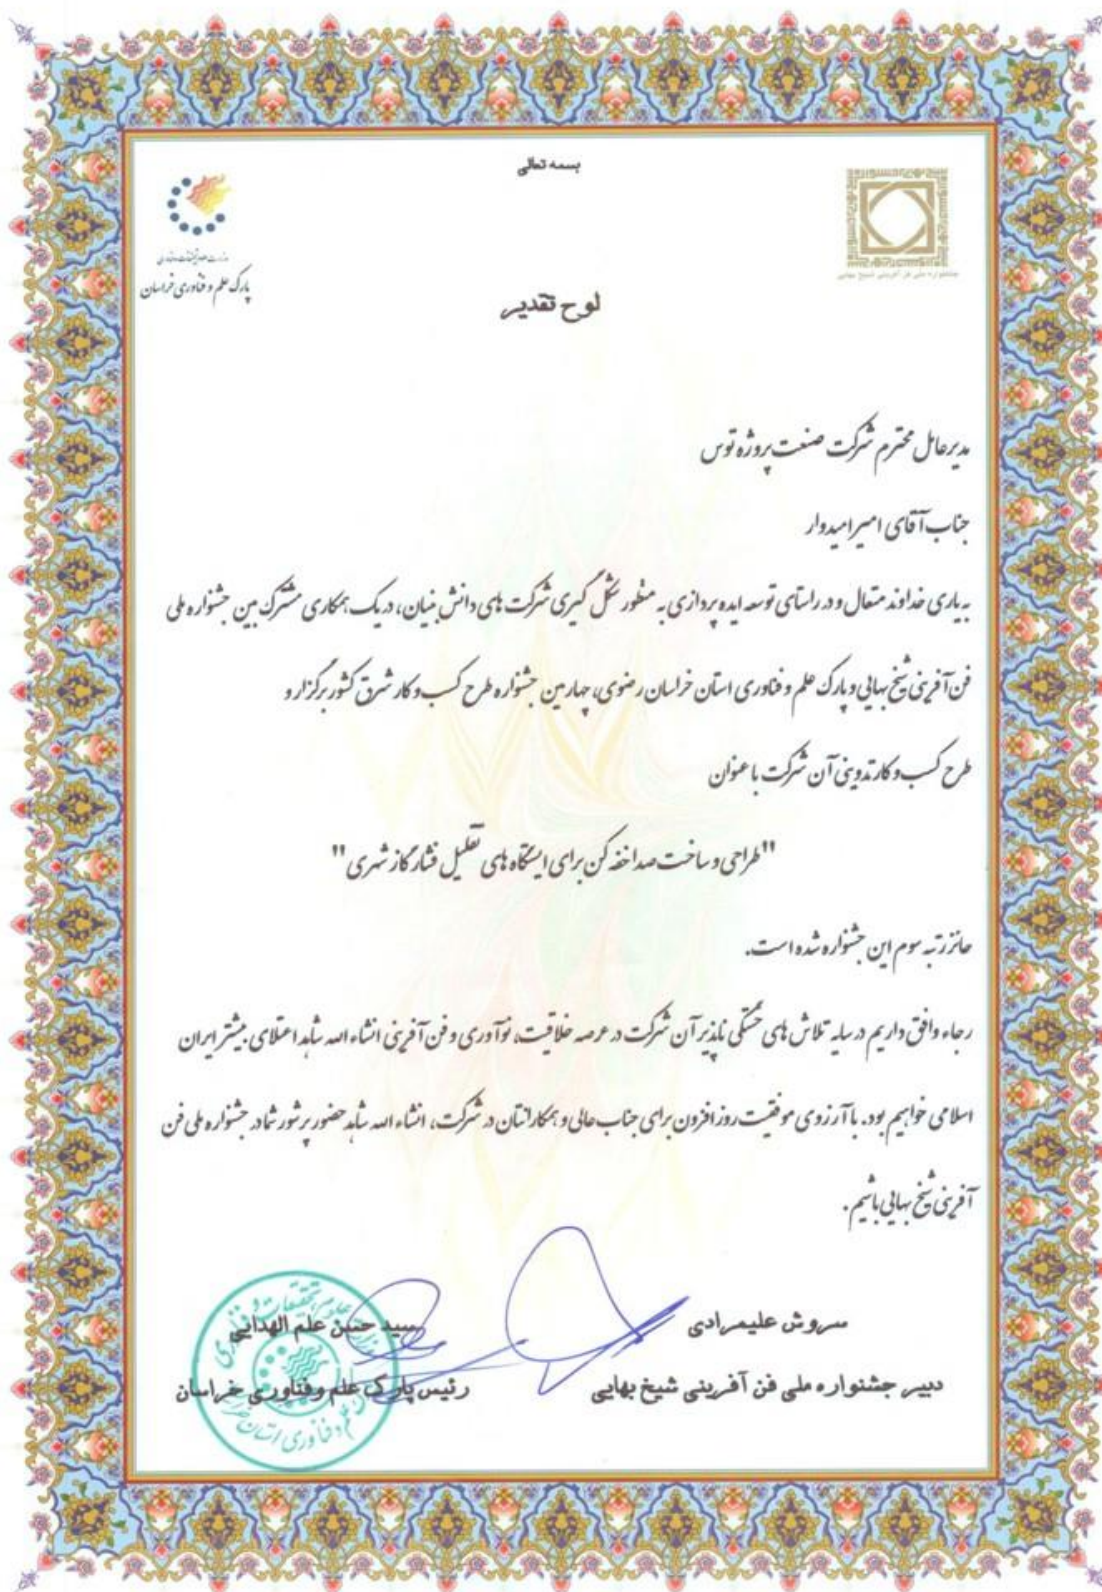 بسمه تعالی
جشنواره ملی فن آفرینی شیخ بهایی
وزارت علوم، تحقیقات و فناوری
پارک علم و فناوری خراسان
لوح تقدیر
مدیرعامل محترم شرکت صنعت پروژه توس
جناب آقای امیر امیدوار
به یاری خداوند متعال و در راستای توسعه ایده پردازی به منظور شکل گیری شرکت های دانش بنیان، در یک همکاری مشترک بین جشنواره ملی
فن آفرینی شیخ بهایی و پارک علم و فناوری استان خراسان رضوی، چهارمین جشنواره طرح کسب و کار شرق کشور برگزار و
طرح کسب و کار تدوینی آن شرکت با عنوان
"طراحی و ساخت صدا خفه کن برای ایستگاه های تقلیل فشار گاز شهری"
حائز رتبه سوم این جشنواره شده است.
رجاء واثق داریم در سایه تلاش های خستگی ناپذیر آن شرکت در عرصه خلاقیت، نوآوری و فن آفرینی انشاء الله شاهد اعتلای بیشتر ایران
اسلامی خواهیم بود. با آرزوی موفقیت روز افزون برای جناب عالی و همکارانتان در شرکت، انشاء الله شاهد حضور پرشور شما در جشنواره ملی فن
آفرینی شیخ بهایی باشیم.
سروش علیمرادی
دبیر جشنواره ملی فن آفرینی شیخ بهایی
سید حسن علم الهدایی
رئیس پارک علم و فناوری خراسان